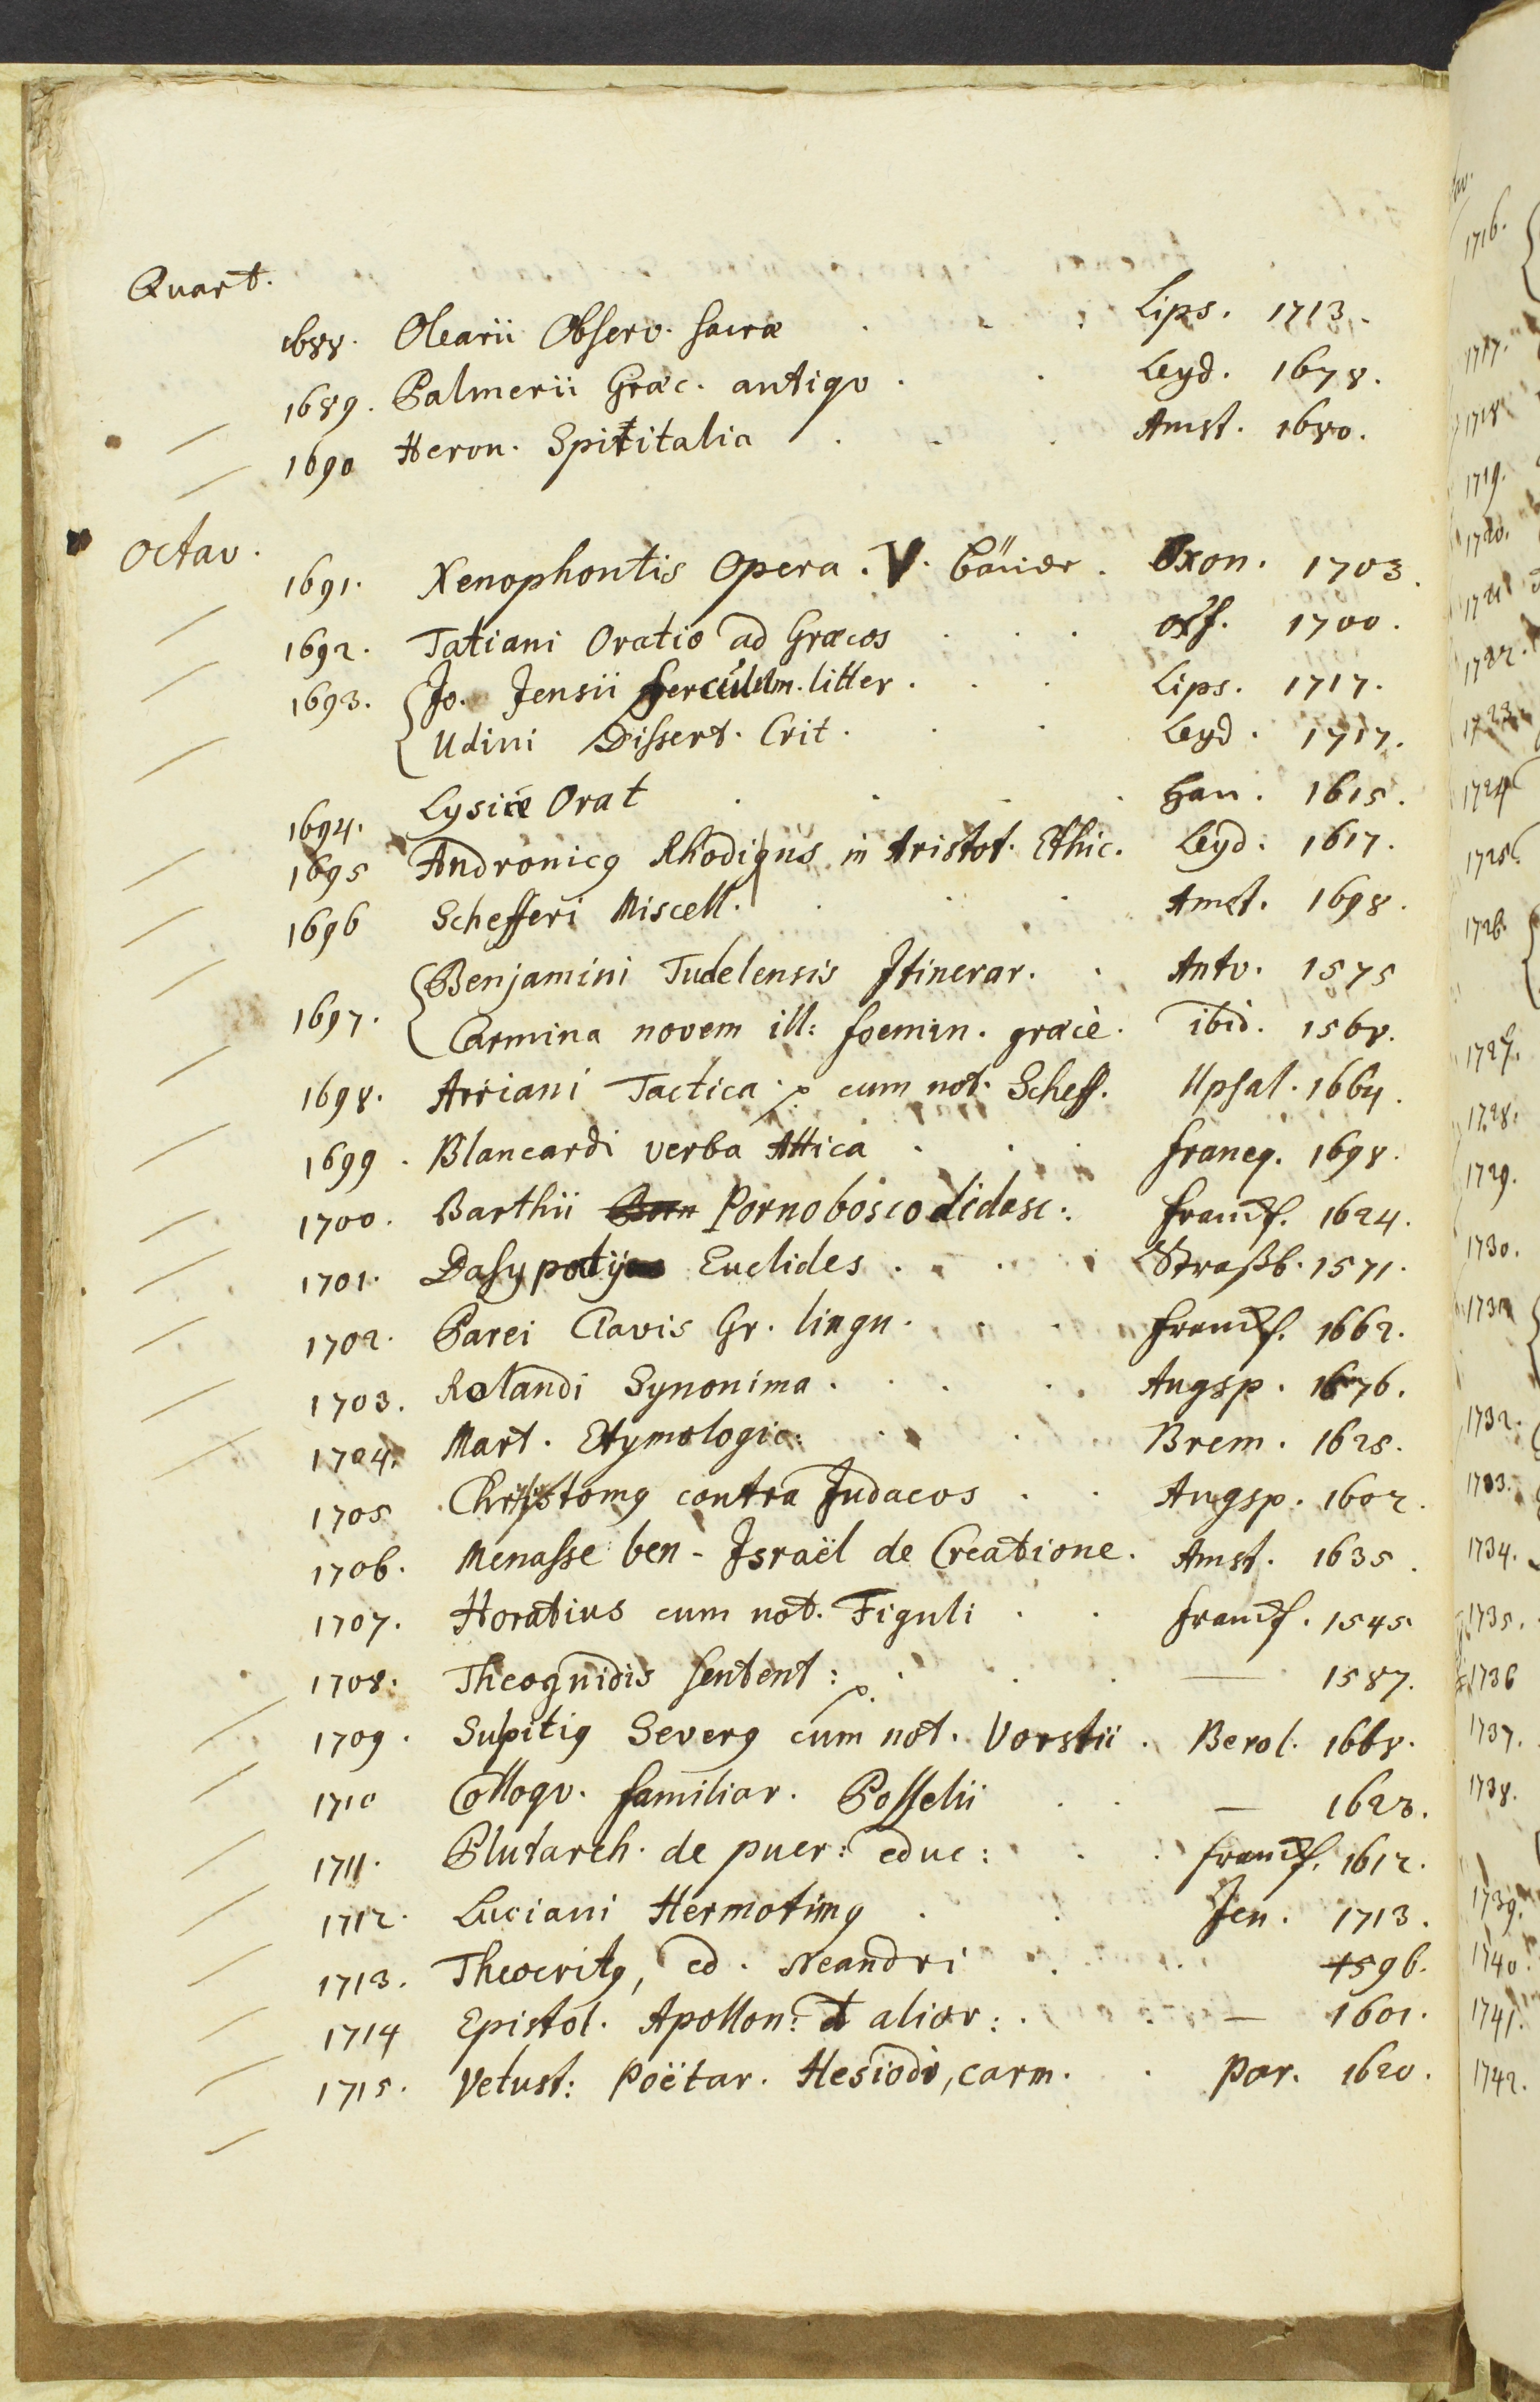 Quart.
1688. Olearii Observ. sacræ . . : Lips. 1713.
1689. Palmerii Græc. antiqv . . Leyd. 1678.
1690 Heron. Spititalia . . . Amst. 1680.
Octav.
1691. Xenophontis Opera. V. Bänder. Oxon. 1703.
1692. Tatiani Oratio ad Græcos . . . oxf. 1700.
1693. Jo. Jensii ferculum. litter . . . Lips. 1717.
Udini Dissert. Crit. . . Leyd. 1717.
1694. Lysiæ Orat . . . . Han. 1615.
1695 Andronicq Rhodiqus in Aristot. Ethic. Leyd. 1617.
1696 Schefferi Miscell. . . . Amst. 1698.
1697. Benjamini Tudelensis Itinerar. . Antv. 1575
Carmina novem ill: foemin. græcè. ibid. 1568.
1698. Arriani Tactica. cum not. Scheff. Upsal. 1664.
1699. Blancardi verba Attica . . . franeq. 1698.
1700. Barthii Born Pornoboscodidasc: francf. 1624.
1701. Dasypodij Euclides . . . Straßb. 1571.
1702. Parei Clavis Gr. lingu. . . francf. 1662.
1703. Rolandi Synonima . . . . Augsp. 1676.
1704. Mart. Etymologic: . . Brem. 1625.
1705 Chrisostomq contra Judaeos . . Augsp. 1602.
1706. Menasse ben-Israël de Creatione. Amst. 1635.
1707. Horatius cum not. Figuli . . francf. 1545
1708. Theognidis sentent: . . . — 1587.
1709. Sulpitiq Severq cum not. Vorstii . Berol. 1668.
1710 Colloqv. familiar. Posselii . . — 1623.
1711. Plutarch. de puer: educ: . . francf. 1612.
1712. Luciani Hermotimq . . Jen. 1713.
1713. Theocritq, ed. Neandri . . 1596.
1714 Epistol. Apollon: et alior: . . — 1601.
1715. Vetust: Poëtar. Hesiodi, carm. . Par. 1620.
1716.
1717.
1718
1719.
1720.
1721
1722.
1723.
1724
1725.
1726.
1727.
1728.
1729.
1730.
1731
1732.
1733.
1734.
1735.
1736
1737.
1738.
1739.
1740.
1741.
1742.